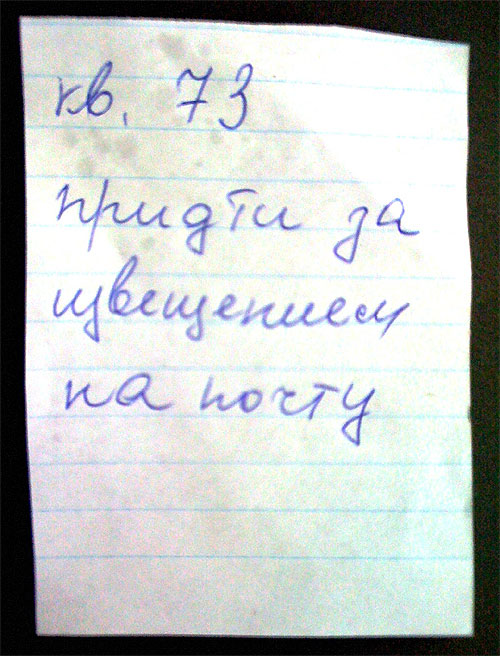 кв. 73
придти за
извещением
на почту